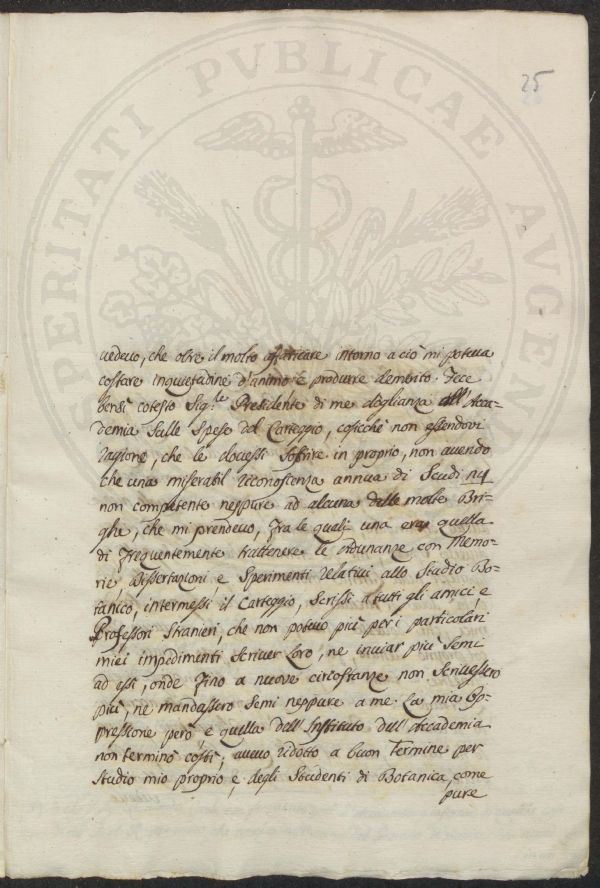 25
PROSPERITATI PVBLICAE AVGENDAE
vedevo, che oltre il molto affaticare intorno a ciò mi poteva
costare inquietudine d'animo e produrre demerito. Fece
bensì cotesto Sig.le Presidente di me doglianza all'Acca=
demia sulle Spese del Carteggio, cosicchè non essendovi
ragione, che le dovessi soffrire in proprio, non avendo
che una miserabil riconoscenza annua di Scudi
non competente neppure ad alcuna delle molte Bri=
ghe, che mi prendevo, fra le quali una era quella
di frequentemente trattenere le adunanze con Memo=
rie Dissertazioni e Sperimenti relativi allo Studio Bo=
tanico, intermessi il Carteggio, scrissi a tutti gli amici e
Professori Stranieri, che non potevo più per i particolari
miei impedimenti scriver Loro, ne inviar più semi
ad essi, onde fino a nuove circostanze non scrivessero
più, ne mandassero semi neppure a me. La mia Op=
pressione però e quella dell'Instituto dell'Accademia
non terminò costì; avevo ridotto a buon termine per
Studio mio proprio e degli Studenti di Botanica, come
pure